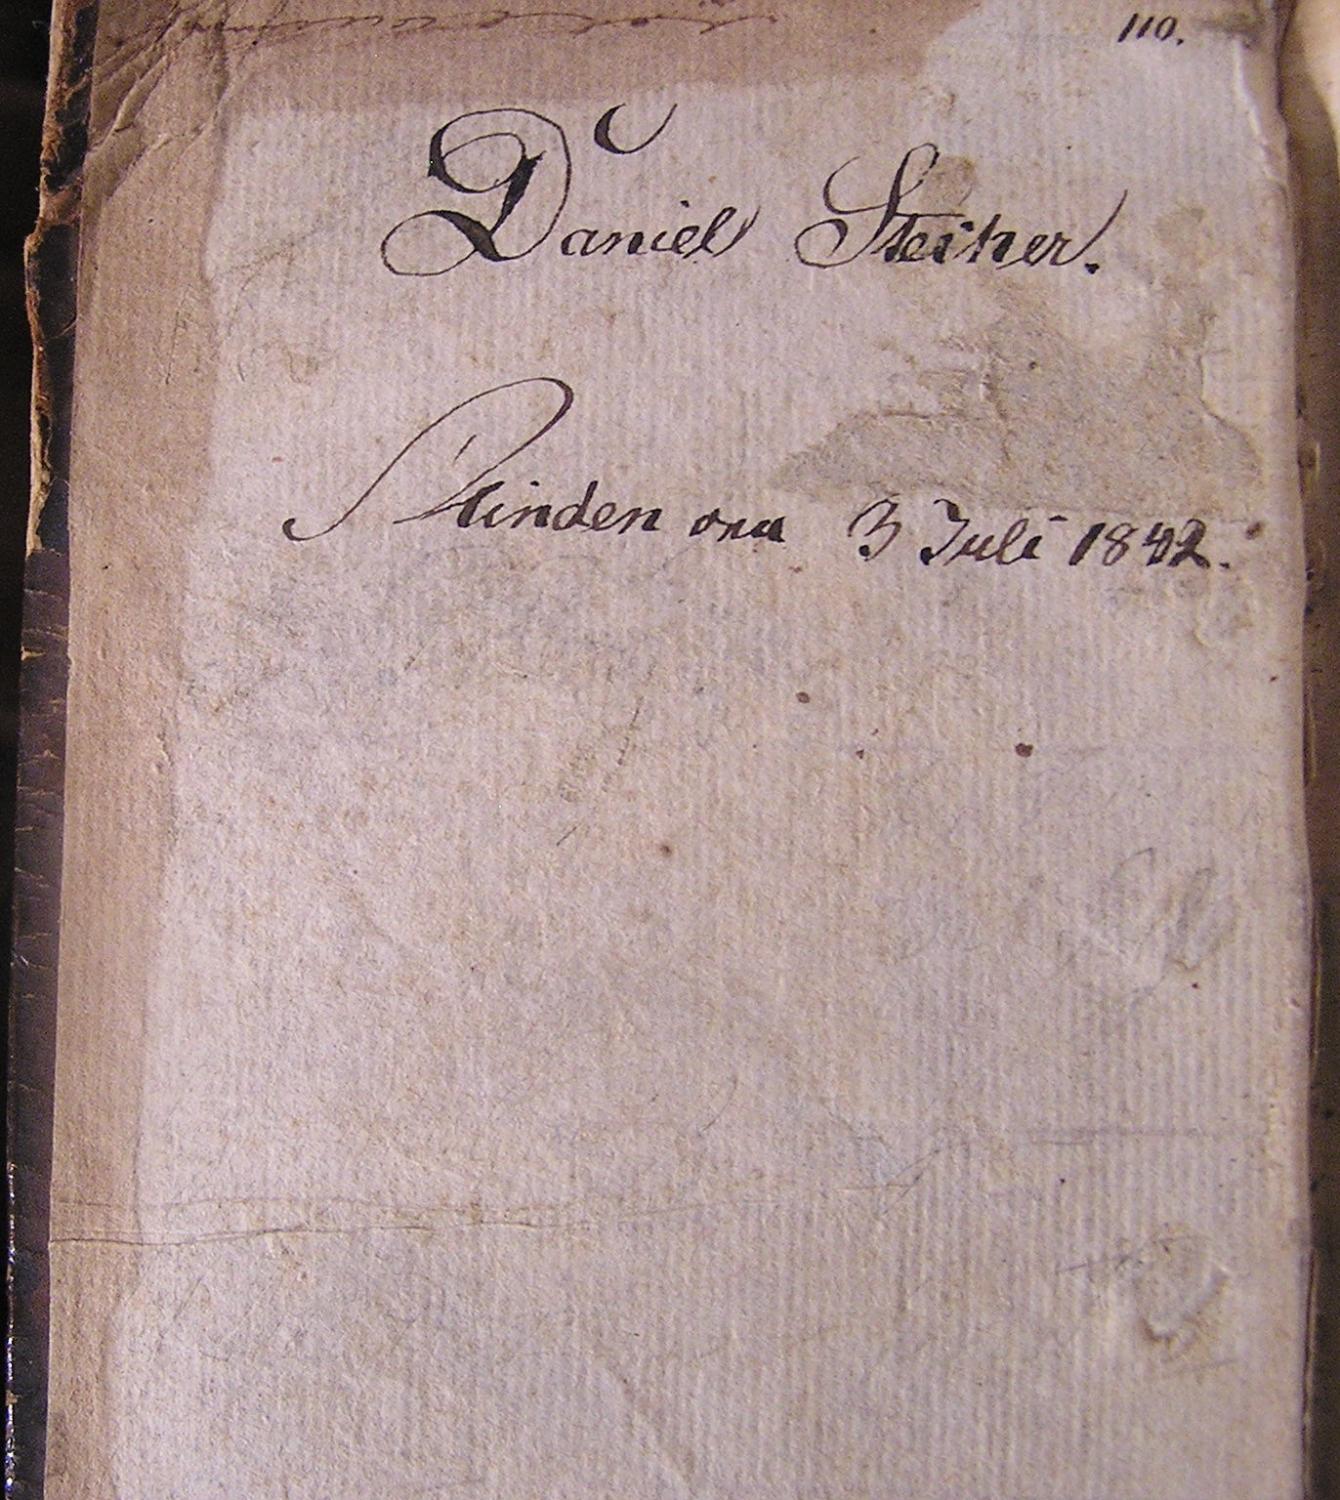 110.
Daniel Steiner.
Minden 3 Juli 1842.